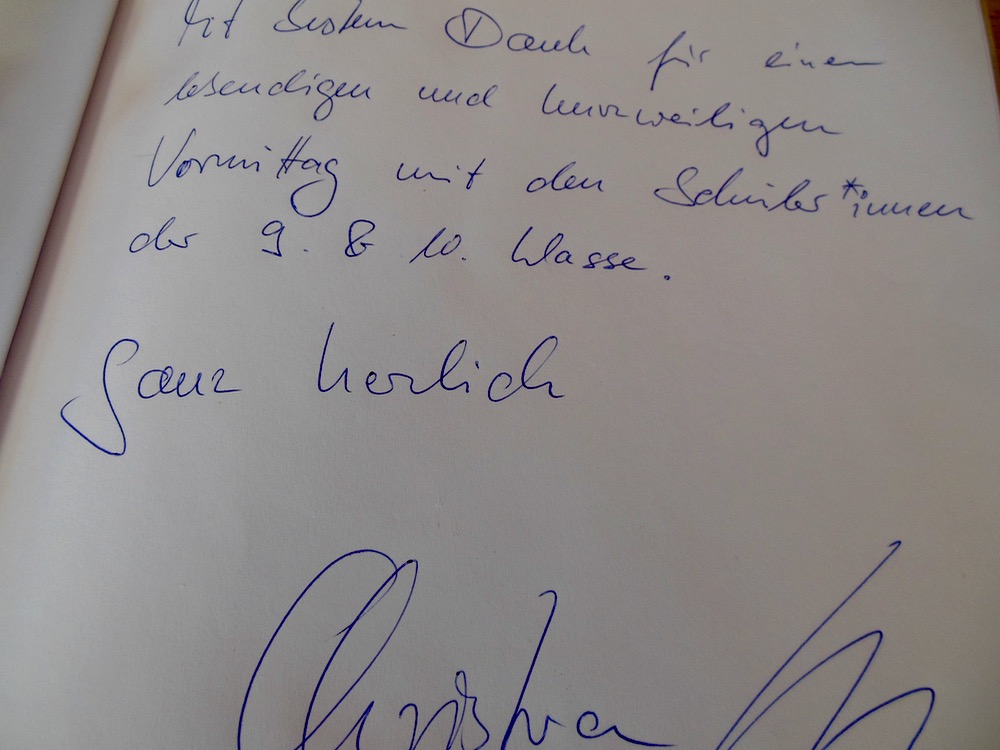 Mit bestem Dank für einen
lebendigen und kurzweiligen
Vormittag mit den Schüler*innen
der 9. & 10. Klasse.
Ganz herzlich